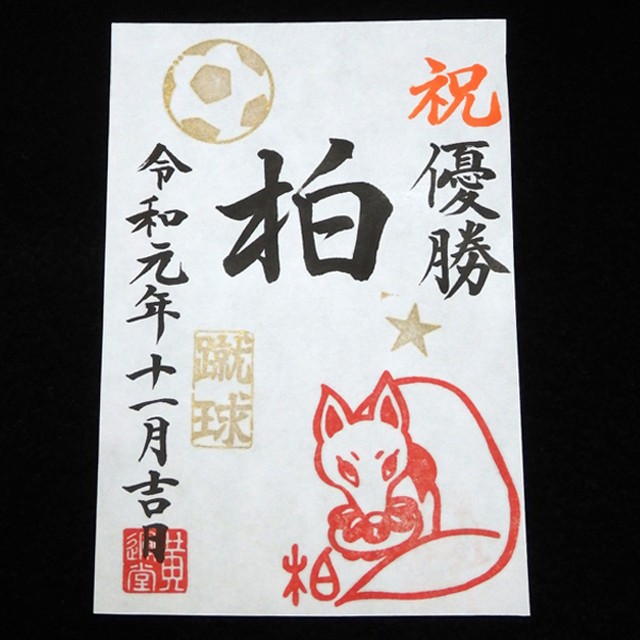 祝優勝
柏
蹴球
令和元年十一月吉日
柏